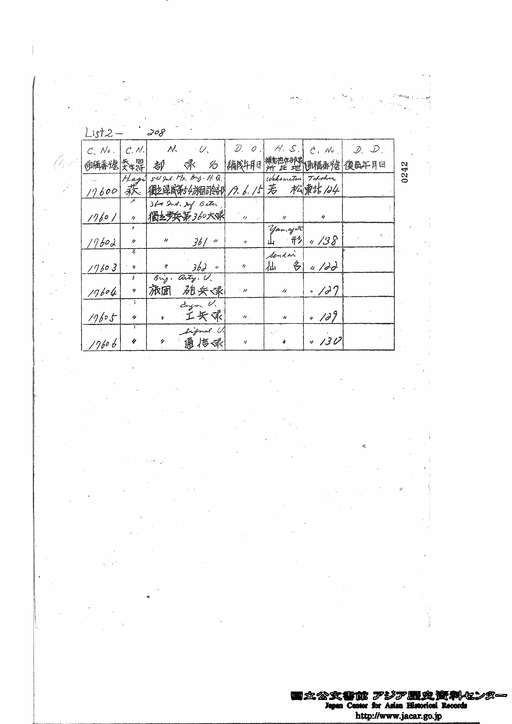 List 2 — 208
C. No. C. N. N. U. D. O. H. S. C. No. D. D.
部隊名 編成年月日 所在地 復員年月日
Hagi 54 Ind. Mx. Brig. H.Q. Wakamatsu Tohoku
17600 萩 獨立混成第54旅團司令部 19.6.15 若松 東北124
360 Ind. Inf. Batn.
17601 〃 獨立步兵第360大隊 〃 〃 〃
Yamagata
17602 〃 〃 361 〃 〃 山形 〃 138
Sendai
17603 〃 〃 362 〃 〃 仙台 〃 122
Brig. Arty. U.
17604 〃 旅團 砲兵隊 〃 〃 〃 127
Engr. U.
17605 〃 〃 工兵隊 〃 〃 〃 129
Signal U.
17606 〃 〃 通信隊 〃 〃 〃 130
0242
国立公文書館 アジア歴史資料センター
Japan Center for Asian Historical Records
http://www.jacar.go.jp